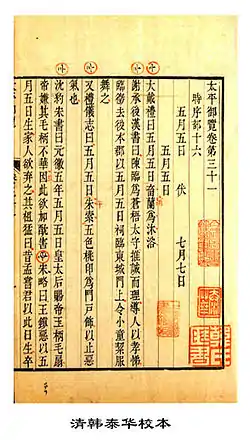 太平御覽卷第三十一
時序部十六
五月五日 伏 七月七日
五月五日
大戴禮曰五月五日蓄蘭爲沐浴
謝承後漢書曰陳臨爲蒼梧太守推誠而理導人以孝悌
臨徵去後本郡以五月五日祠臨東城門上令小童絜服
舞之
又禮儀志曰五月五日朱索五色桃印爲門戶飾以止惡
氣也
沈約宋書曰元徽五年五月五日皇太后賜帝玉柄毛扇
帝嫌其毛柄不華因此欲加酖害
宋略曰王鎮惡以五
月五日生家人欲弃之其祖猛曰昔孟嘗君以此日生卒
清韩泰华校本